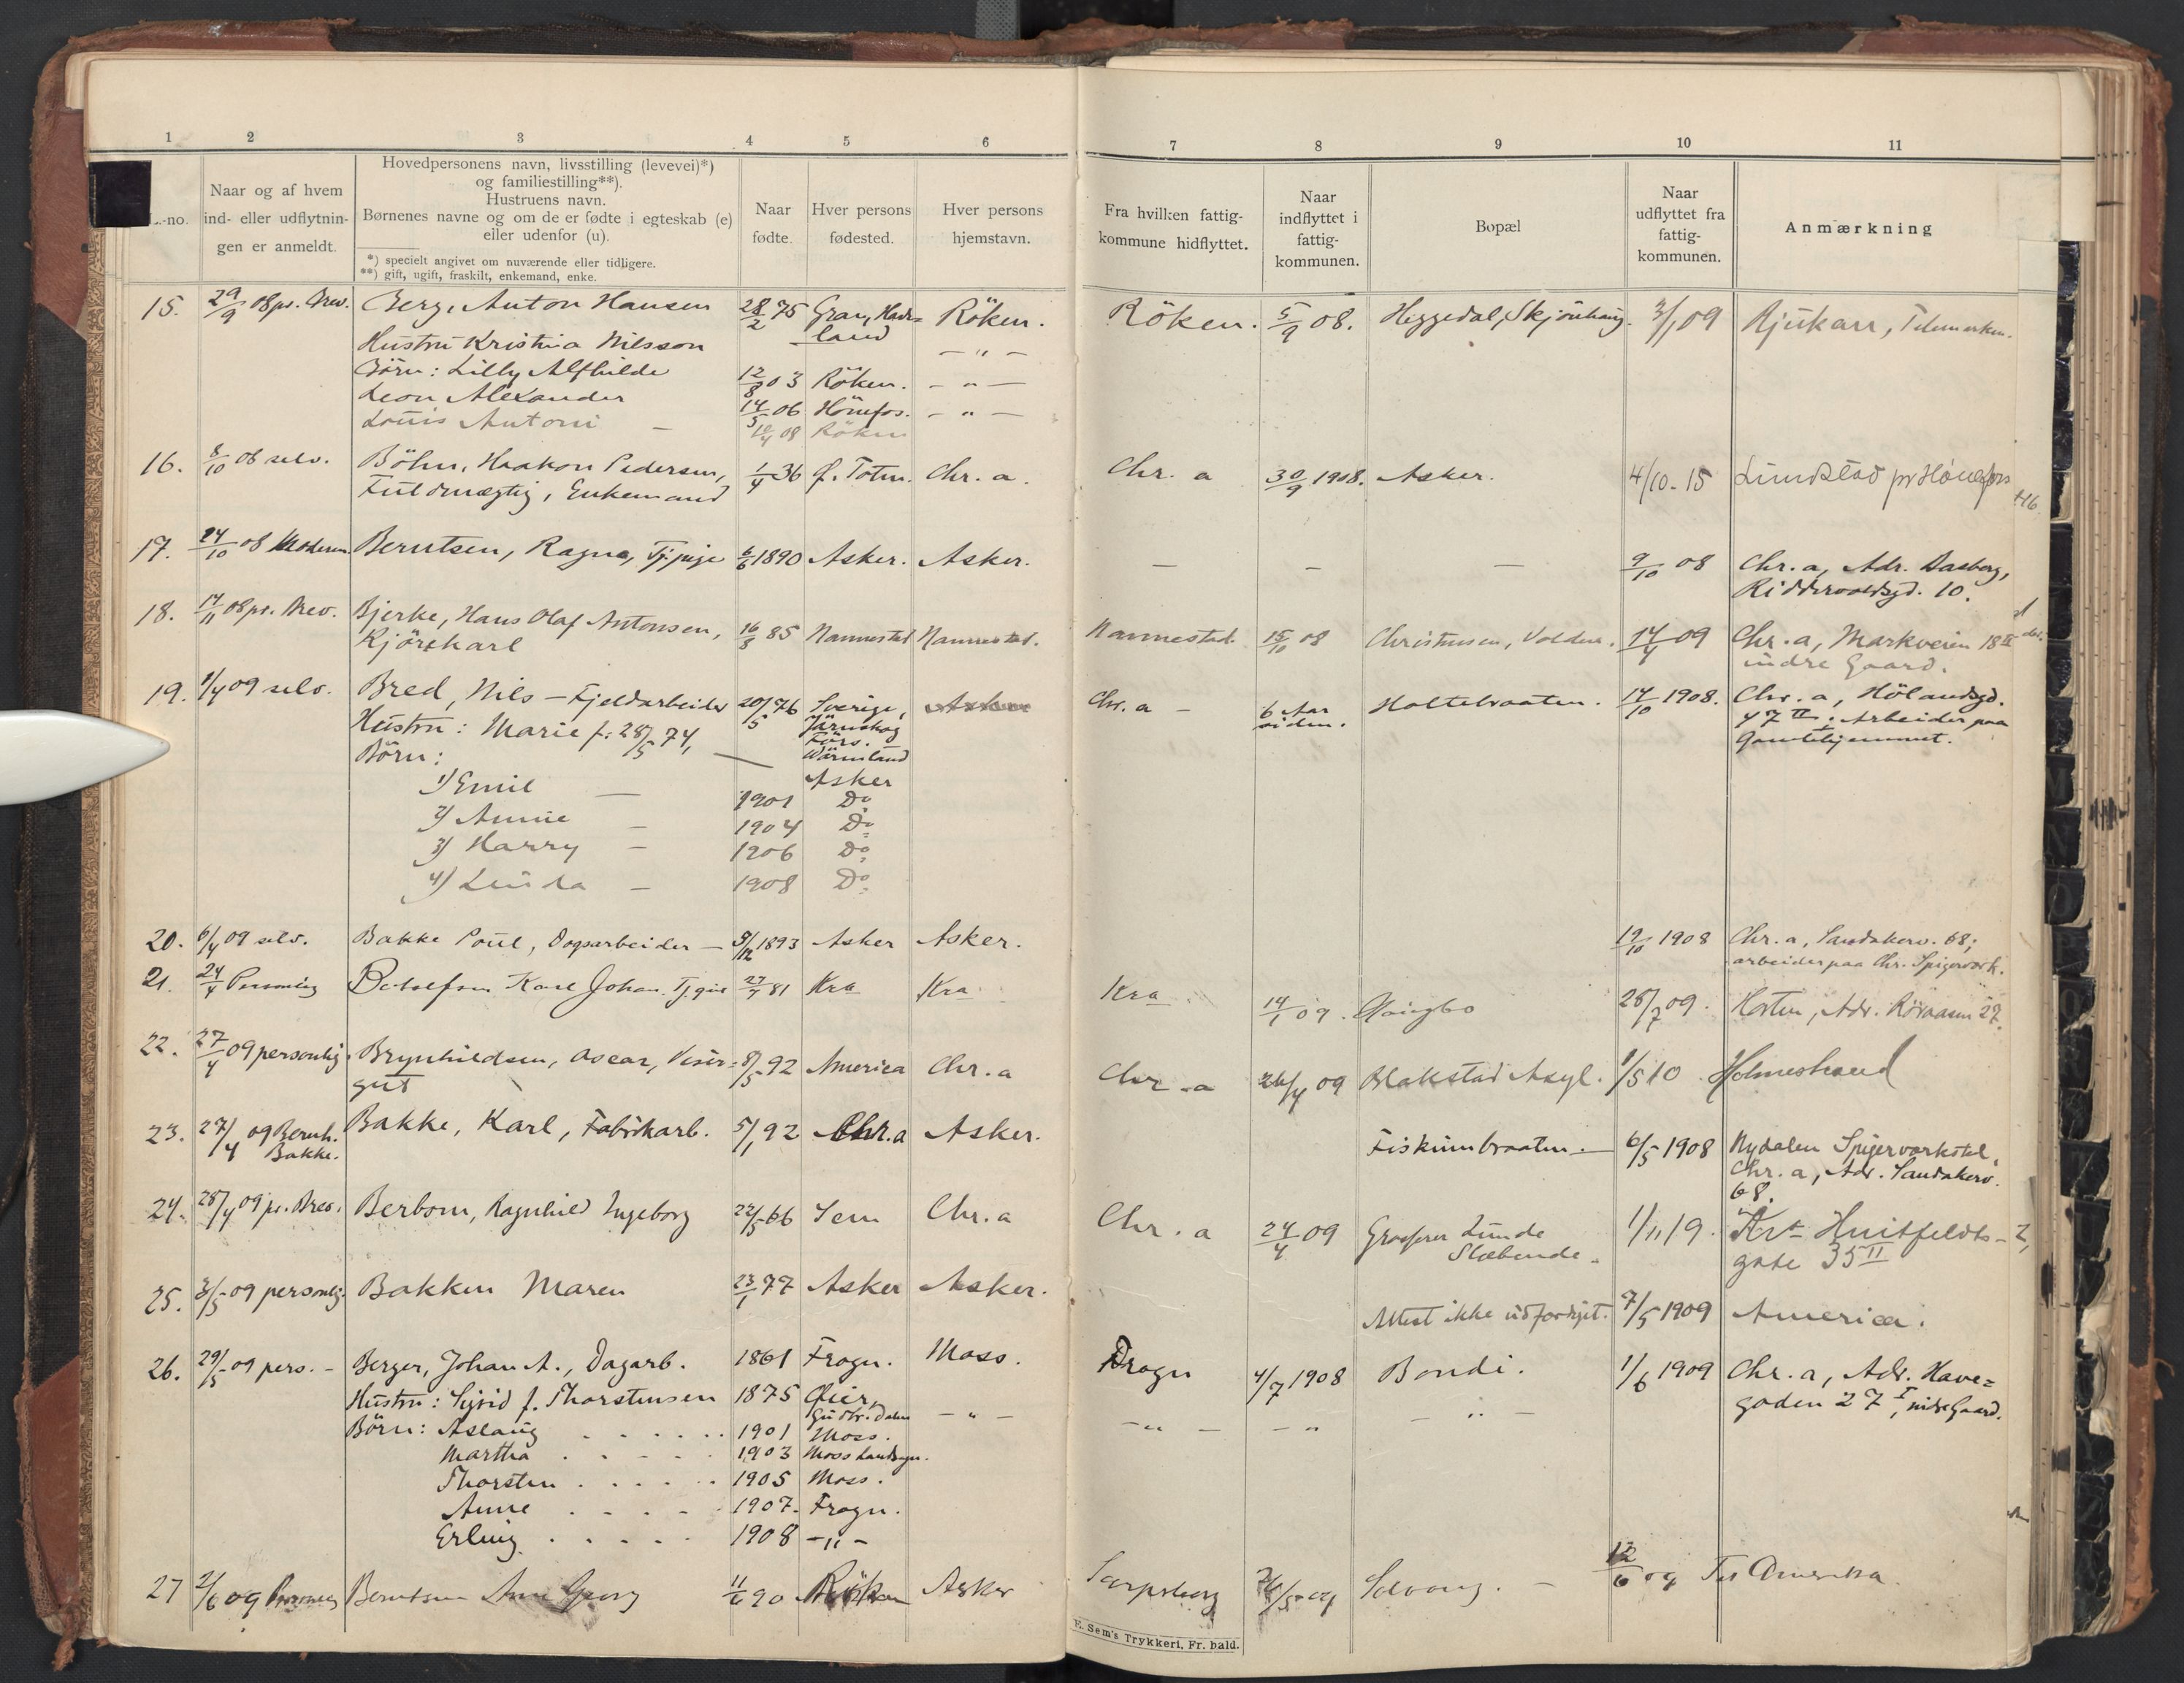 1 2 3 4 5 6 7 8 9 10 11
L.-no.
Naar og af hvem
ind- eller udflytnin-
gen er anmeldt.
Hovedpersonens navn, livsstilling (levevei)*)
og familiestilling**).
Hustruens navn.
Børnenes navne og om de er fødte i egteskab (e)
eller udenfor (u).
*) specielt angivet om nuværende eller tidligere.
**) gift, ugift, fraskilt, enkemand, enke.
Naar
fødte.
Hver persons
fødested.
Hver persons
hjemstavn.
Fra hvilken fattig-
kommune hidflyttet.
Naar
indflyttet i
fattig-
kommunen.
Bopæl
Naar
udflyttet fra
fattig-
kommunen.
Anmærkning
15. 29/9 08 pr. Brev. Berg, Anton Hansen 28/2 75 Gran, Hade= Röken. Röken. 5/9 08. Heggedal, Skjönhaug. 3/1 09 Rjukan, Telemarken.
land
Hustru Kristina Nilsson — " —
Börn: Lilly Alfhilde 12/8 03 Röken. — " —
Leon Alexander 14/5 06 Hönefos. — " —
Louis Antoni — 10/4 08 Röken
16. 8/10 08 selv. Böhn, Haakon Pedersen, 1/4 36 Ø. Toten. Chr. a. Chr. a 30/9 1908. Asker. 4/10-15 Lundstad pr Hönefoss
Fuldmægtig, Enkemand
17. 24/10 08 Moderen Berntsen, Ragna, Tj.pige 6/6 1890 Asker. Asker. — — — 9/10 08 Chr. a, Adr. Aasberg,
Riddervoldsgd. 10.
18. 17/11 08 pr. Brev. Bjerke, Hans Olaf Antonsen, 16/8 85 Nannestad Nannestad. Nannestad. 15/10 08 Christensen, Volden. 14/4 09 Chr. a, Markveien 18 II
Kjörekarl
indre Gaard.
19. 1/4 09 selv. Bred, Nils — Fjeldarbeider 20/5 76 Sverige, Asker Chr. a — 6 Aar Holtebraaten. 14/10 1908. Chr. a, Hölandsgd.
siden.
Hustru: Marie f. 28/5 74, Järnskog 47 II. Arbeider paa
Förs.
Gamlehjemmet.
Börn: — Wärmland
1) Emil — Asker
1901 Do
2) Annie — 1904 Do
3) Harry — 1906 Do
4) Linda — 1908 Do
20. 6/4 09 selv. Bakke Poul, Dagsarbeider — 9/12 1893 Asker Asker. 19/10 1908 Chr. a, Sandakerv. 68;
arbeider paa Chr. Spigerverk.
21. 24/4 Personlig Karl Johan Tj.gut 27/7 81 Kra Kra Kra 14/1 09. 28/7 09. Horten, Adr. 27.
22. 27/4 09 personlig. Brynhildsen, Oscar, Viser= 8/5 92 America Chr. a Chr. a 26/4 09 Blakstad Asyl. 1/5 10 Holmestrand
gut
23. 27/4 09 Bernh. Bakke, Karl, Fabrikarb. 5/1 92 Chr. a Asker. Fiskumbraaten. — 6/5 1908 Nydalen Spigerverksted,
Bakke.
Chr. a, Adr. Sandakerv.
68.
24. 28/4 09 pr. Brev. Berbom, Ragnhild Ingeborg 22/5 66 Sem Chr. a Chr. a 24/4 09 Grosserer Lunde 1/11 19. Huitfeldts-
Slæbende. gate 35 II
25. 3/5 09 personlig. Bakken Maren 23/1 77 Asker Asker. Attest ikke udfærdiget. 7/5 1909 America.
26. 29/5 09 pers. — Berger, Johan A., Dagarb. 1861 Frogn. Moss. Drogn 4/7 1908 Bondi. 1/6 1909 Chr. a, Adr. Have=
Hustru: Sigrid f. Thorstensen 1875 Øier, gaden 27 I, indre Gaard.
Gudbr. dalen — " — — " — — " — " —
Börn: Aslaug . . . . . . 1901 Moss.
Martha . . . . 1903 Moss Landsogn.
Thorsten . . . . . 1905 Moss.
Anne . . . . 1907. Frogn.
Erling . . . . . 1908 — " —
27 2/6 09 Personlig Berntsen Georg 11/6 90 Röken Asker Sarpsborg Solvang. — 12/6 09 Til Amerika
E. Sem's Trykkeri, Fr. hald.